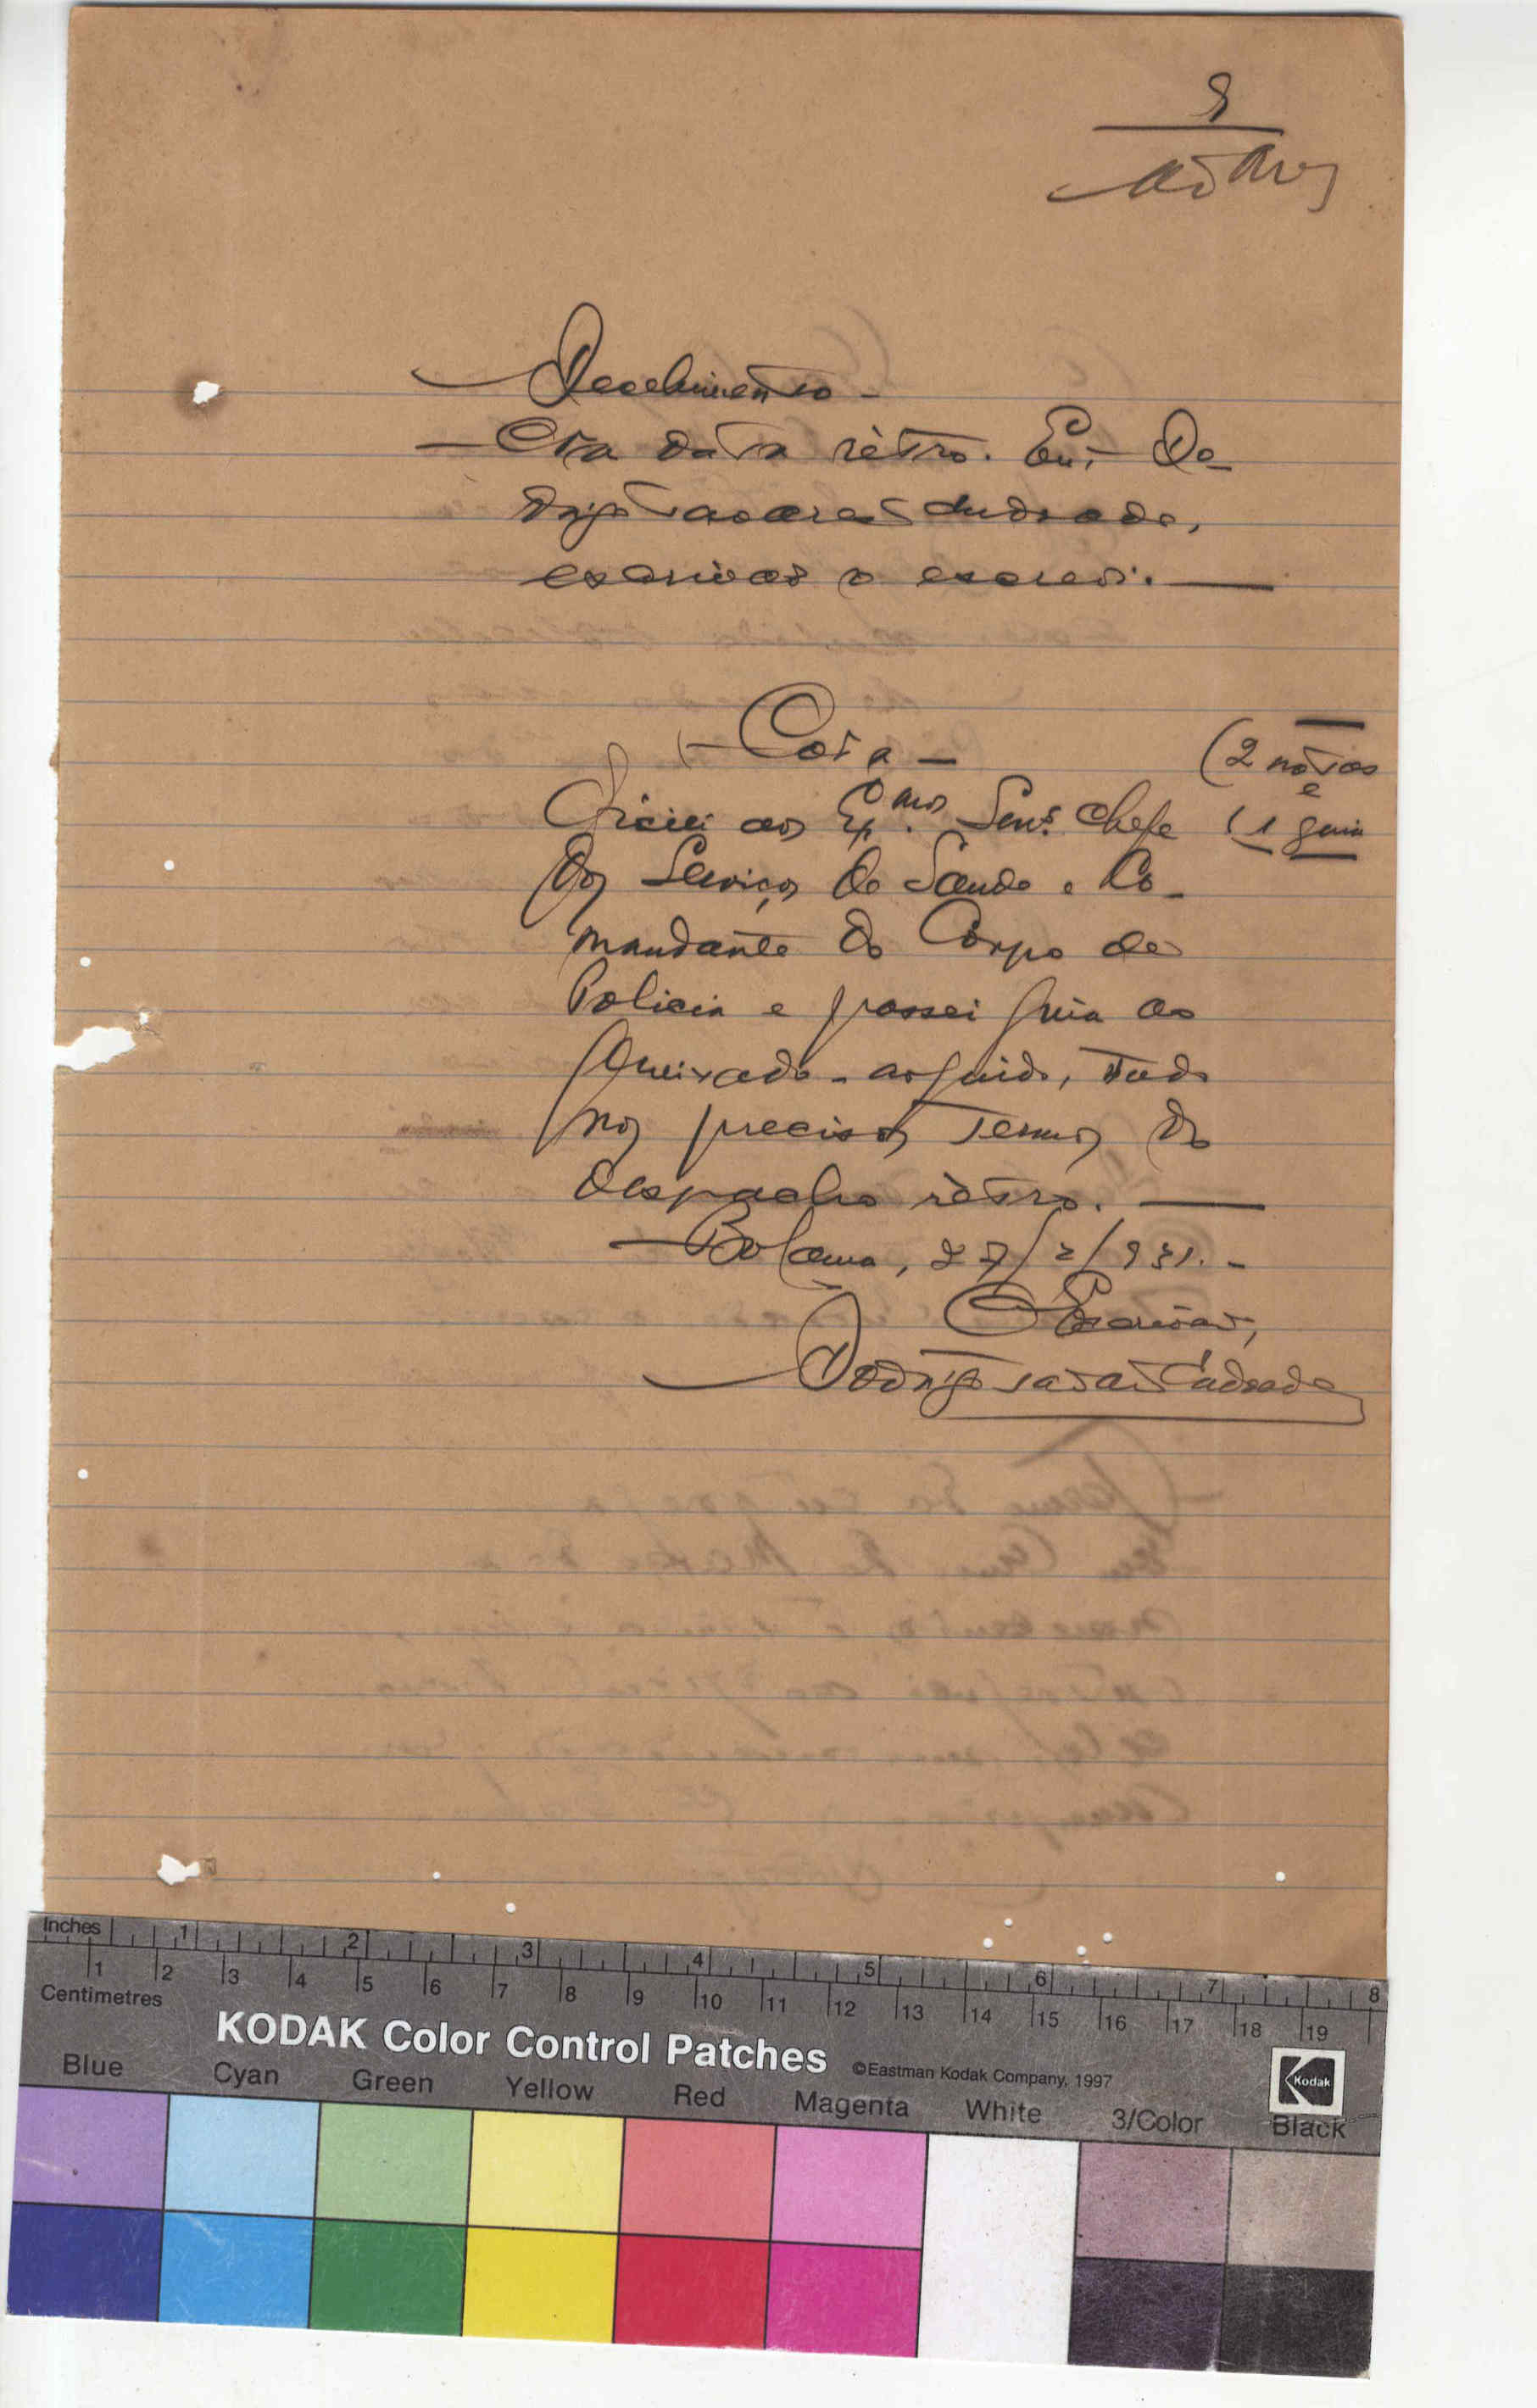 9
Recebimento -
— Era data rètro. Eu,
Andrade,
escrivão o escrevi. —
— Cota —
(2 notas
e
(1 guia
Oficiei aos Exmos Senrs. Chefe
dos Serviços de Saude e Co-
mandante do Corpo de
Policia e passei guia ao
queixado - arguido, tudo
nos precisos termos do
despacho rètro. —
— Bolama, 27/2/931. -
O Escrivão,
Andrade
Inches 1 2 3 4 5 6 7 8
1 2 3 4 5 6 7 8 9 10 11 12 13 14 15 16 17 18 19
Centimetres
KODAK Color Control Patches
©Eastman Kodak Company, 1997
Kodak
Blue Cyan Green Yellow Red Magenta White 3/Color Black